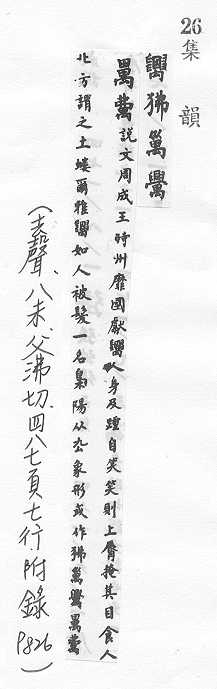 26
集韻
狒
說文周成王時州靡國獻人身反踵自笑笑則上脣掩其目食人
北方謂之土螻爾雅如人被髮一名梟陽从厹象形或作狒
(去聲、八未、父沸切、四八七頁七行附錄 P826)